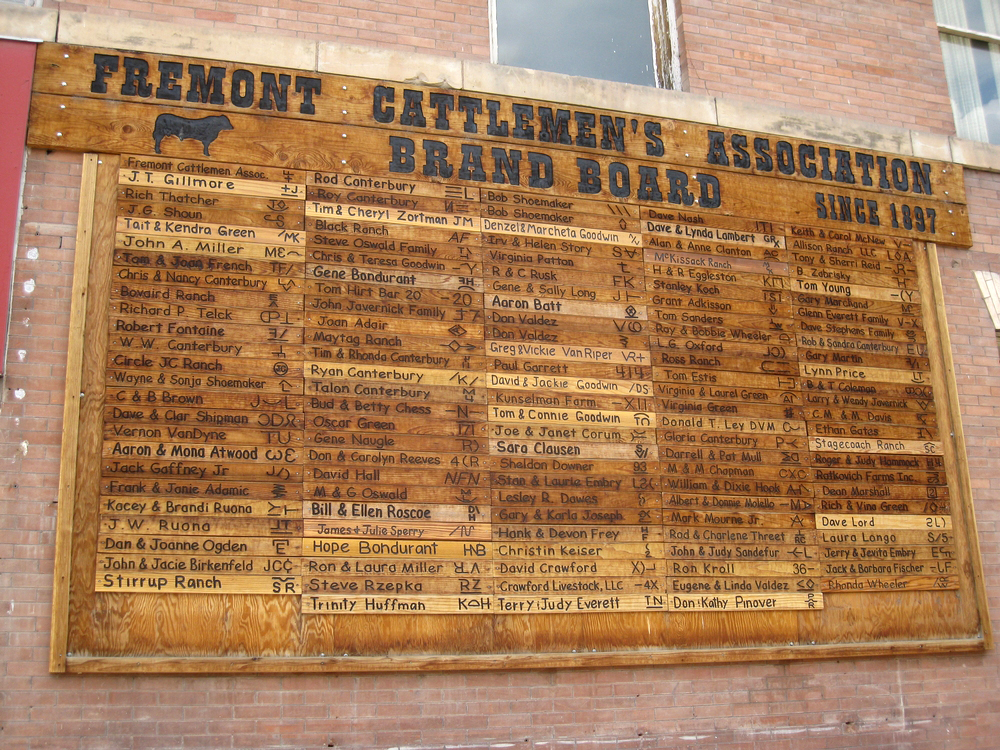 FREMONT CATTLEMEN'S ASSOCIATION
BRAND BOARD
SINCE 1897
Fremont Cattlemen Assoc.
J.T. Gillmore +J
Rich Thatcher
J.G. Shoun
Tait & Kendra Green /MK
John A. Miller
Tom & Joan French TF/
Chris & Nancy Canterbury
Bovaird Ranch
Richard P. Telck
Robert Fontaine
W.W. Canterbury
Circle JC Ranch
Wayne & Sonja Shoemaker
C & B Brown
Dave & Clar Shipman
Vernon VanDyne
Aaron & Mona Atwood
Jack Gaffney Jr
Frank & Janie Adamic
Kacey & Brandi Ruona
J.W. Ruona
Dan & Joanne Ogden
John & Jacie Birkenfeld JCC
Stirrup Ranch SR
Rod Canterbury
Roy Canterbury
Tim & Cheryl Zortman JM
Black Ranch AF
Steve Oswald Family
Chris & Teresa Goodwin
Gene Bondurant
Tom Hirt Bar 20 -20
John Javernick Family
Joan Adair
Maytag Ranch
Tim & Rhonda Canterbury
Ryan Canterbury /K/
Talon Canterbury
Bud & Betty Chess -N-
Oscar Green
Gene Naugle
Don & Carolyn Reeves
David Hall
M & G Oswald
Bill & Ellen Roscoe
James & Julie Sperry
Hope Bondurant HNB
Ron & Laura Miller
Steve Rzepka RZ
Trinity Huffman
Bob Shoemaker
Bob Shoemaker
Denzel & Marcheta Goodwin
Irv & Helen Story
Virginia Patton
R & C Rusk
Gene & Sally Long
Aaron Batt
Don Valdez
Don Valdez
Greg & Vickie VanRiper VR+
Paul Garrett
David & Jackie Goodwin /DS
Kunselman Farm
Tom & Connie Goodwin
Joe & Janet Corum
Sara Clausen
Sheldon Downer 93
Stan & Laurie Embry
Lesley R. Dawes
Gary & Karla Joseph
Hank & Devon Frey
Christin Keiser
David Crawford X)-
Crawford Livestock, LLC -4X
Terry & Judy Everett
Dave Nash
Dave & Lynda Lambert
Alan & Anne Clanton
McKissack Ranch
H & R Eggleston
Stanley Koch
Grant Adkisson
Tom Sanders
Roy & Bobbie Wheeler
L.G. Oxford
Ross Ranch
Tom Estis
Virginia & Laurel Green
Virginia Green
Donald T. Ley DVM
Gloria Canterbury
Darrell & Pat Mull
M & M Chapman CXC
William & Dixie Hook
Albert & Donnie Moliello
Mark Mourne Jr
Rod & Charlene Threet
John & Judy Sandefur
Ron Kroll 36-
Eugene & Linda Valdez
Don & Kathy Pinover
Keith & Carol McNew
Allison Ranch LLC
Tony & Sherri Reid -R-
B. Zobrisky
Tom Young
Gary Marchand
Glenn Everett Family
Dave Stephens Family
Rob & Sandra Canterbury
Gary Martin
Lynn Price
B & T Coleman
Larry & Wendy Javernick
C.M. & M. Davis
Ethan Gates
Stagecoach Ranch
Roger & Judy Hammock
Ratkovich Farms Inc.
Dean Marshall
Rich & Vina Green
Dave Lord 2L)
Laura Longo S/S-
Jerry & Jexito Embry
Jack & Barbara Fischer -LF
Rhonda Wheeler